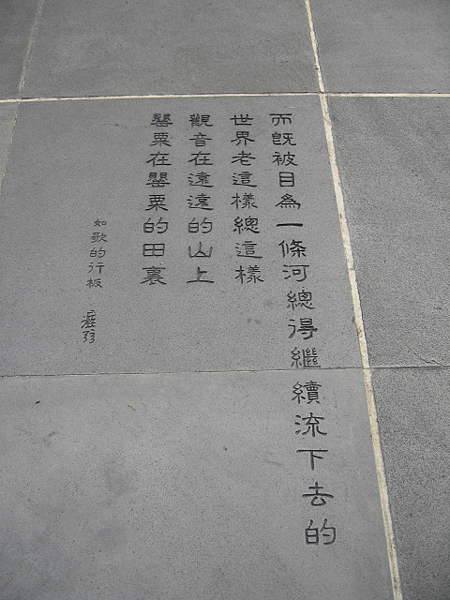 而既被目為一條河總得繼續流下去的
世界老這樣總這樣
觀音在遠遠的山上
罌粟在罌粟的田裏
如歌的行板
瘂弦